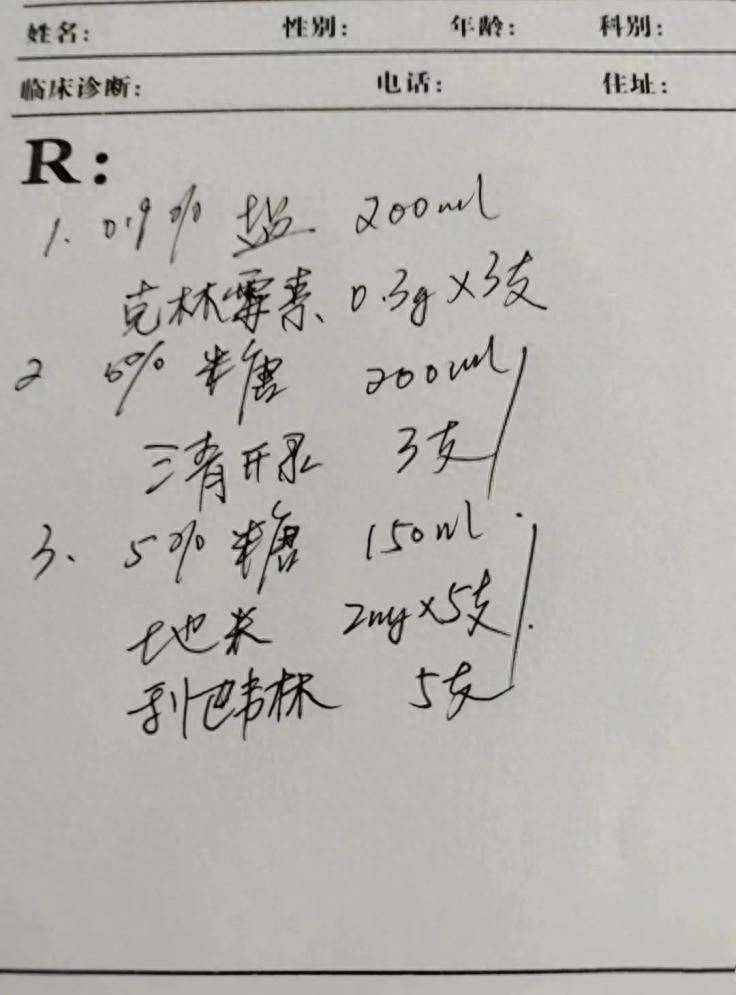 姓名: 性别: 年龄: 科别:
临床诊断: 电话: 住址:
R:
1. 0.9% 盐 200ml
克林霉素 0.3g×3支
2 5% 糖 200ml
清开灵 3支
3、 5% 糖 150ml
地米 2mg×5支
利巴韦林 5支